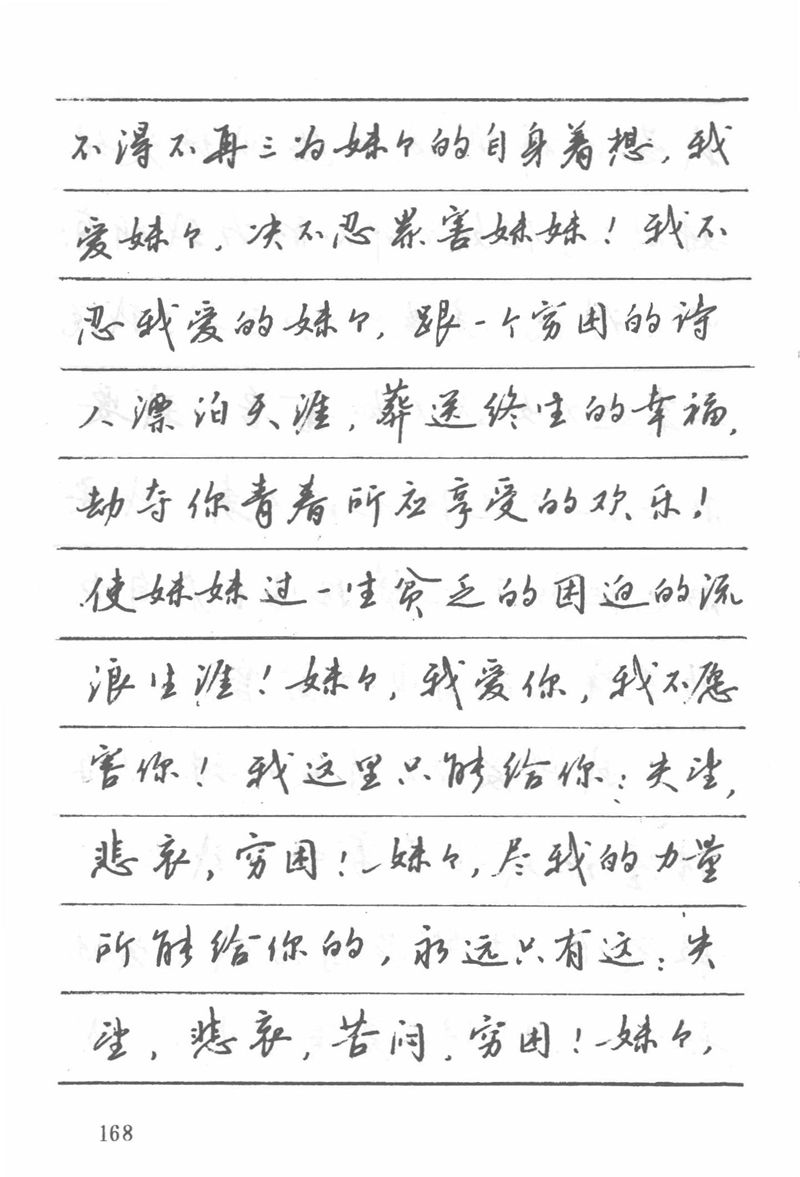 不得不再三为妹々的自身着想，我
爱妹々，决不忍累害妹妹！我不
忍我爱的妹々，跟一个穷困的诗
人漂泊天涯，葬送终生的幸福，
劫夺你青春所应享受的欢乐！
使妹妹过一生贫乏的困迫的流
浪生涯！妹々，我爱你，我不愿
害你！我这里只能给你：失望，
悲哀，穷困！妹々，尽我的力量
所能给你的，永远只有这：失
望，悲哀，苦闷，穷困！妹々，
168